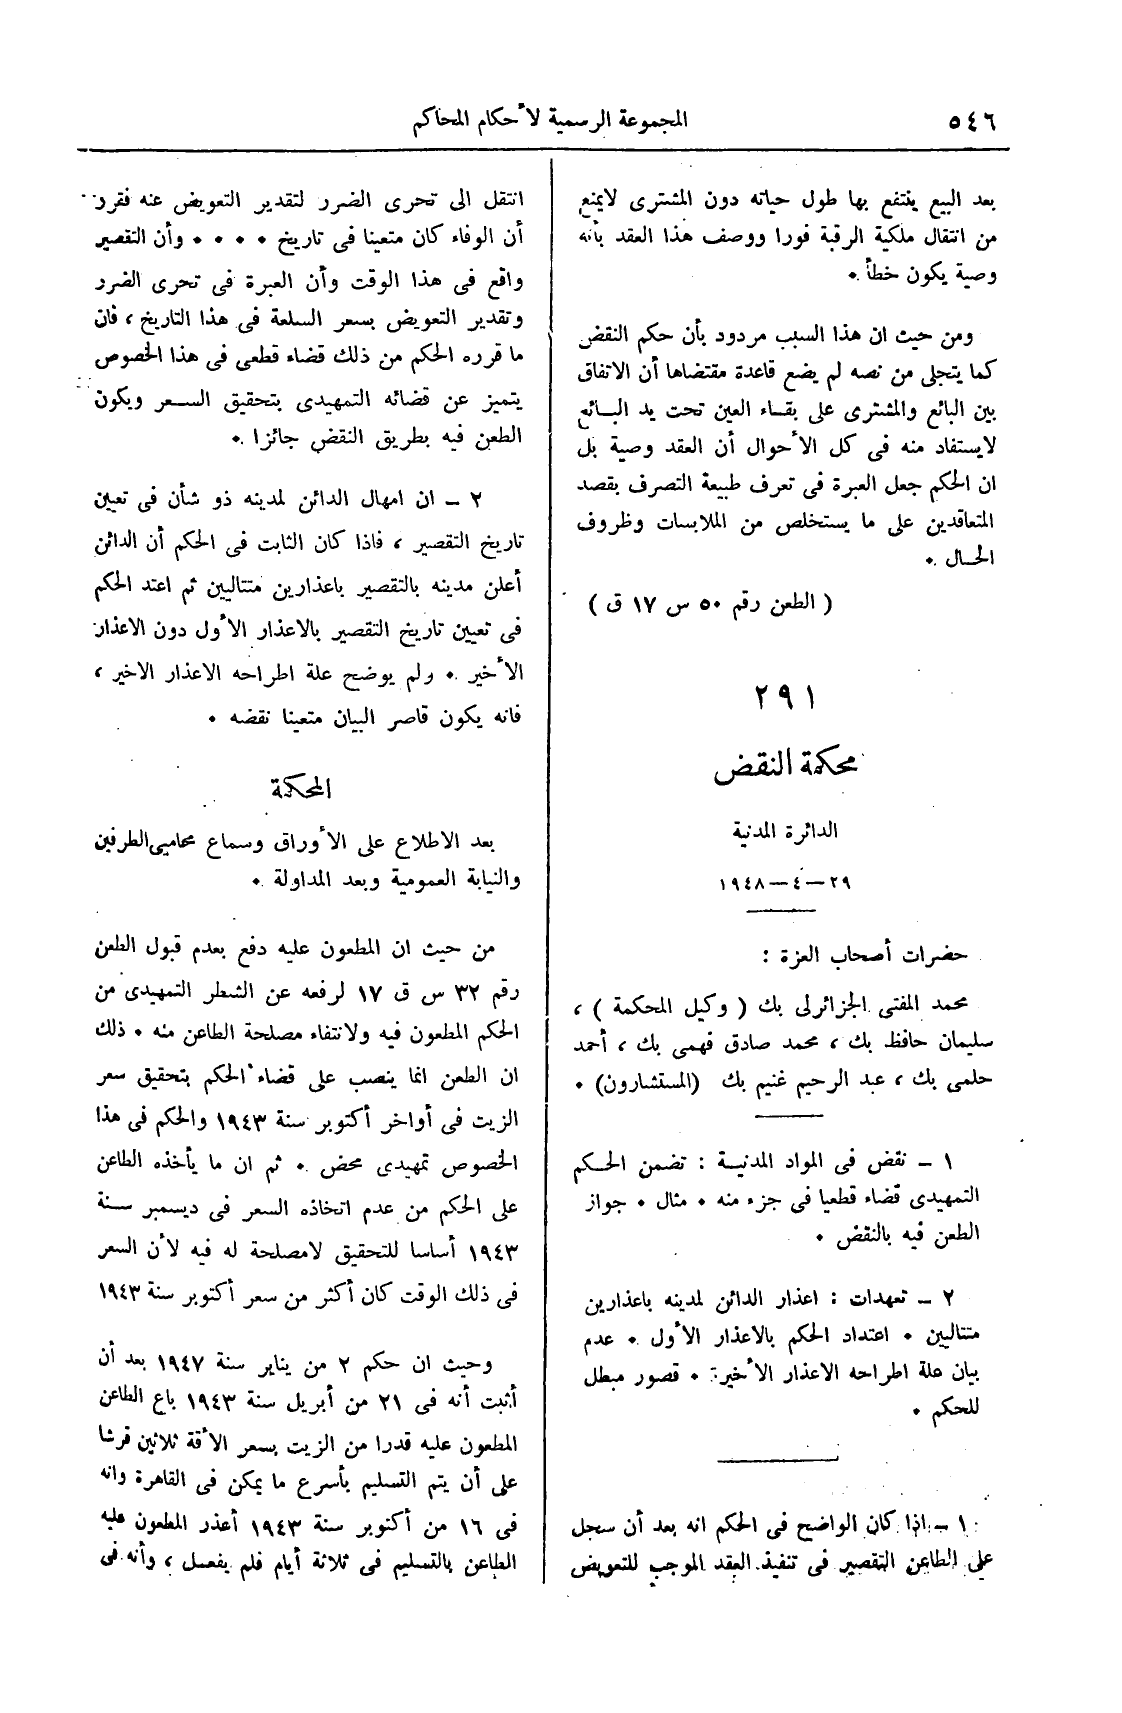 ٥٤٦
المجموعة الرسمية لأحكام المحاكم
بعد البيع ينتفع بها طول حياته دون المشترى لايمنع
من انتقال ملكية الرقبة فورا ووصف هذا العقد بأنه
وصية يكون خطأ ٠
ومن حيث ان هذا السبب مردود بأن حكم النقض
كما يتجلى من نصه لم يضع قاعدة مقتضاها أن الاتفاق
بين البائع والمشترى على بقاء العين تحت يد البائع
لايستفاد منه فى كل الأحوال أن العقد وصية بل
ان الحكم جعل العبرة فى تعرف طبيعة التصرف بقصد
المتعاقدين على ما يستخلص من الملابسات وظروف
الحال ٠
( الطعن رقم ٥٠ س ١٧ ق )
٢٩١
محكمة النقض
الدائرة المدنية
٢٩ – ٤ – ١٩٤٨
حضرات أصحاب العزة :
محمد المفتى الجزائرلى بك ( وكيل المحكمة ) ،
سليمان حافظ بك ، محمد صادق فهمى بك ، أحمد
حلمى بك ، عبد الرحيم غنيم بك (المستشارون) ٠
١ – نقض فى المواد المدنية : تضمن الحكم
التمهيدى قضاء قطعيا فى جزء منه ٠ مثال ٠ جواز
الطعن فيه بالنقض ٠
٢ – تعهدات : اعذار الدائن لمدينه باعذارين
متتاليين ٠ اعتداد الحكم بالاعذار الأول ٠ عدم
بيان علة اطراحه الاعذار الأخير ٠ قصور مبطل
للحكم ٠
١ – اذا كان الواضح فى الحكم انه بعد أن سجل
على الطاعن التقصير فى تنفيذ العقد الموجب للتعويض
انتقل الى تحرى الضرر لتقدير التعويض عنه فقرر
أن الوفاء كان متعينا فى تاريخ ٠ ٠ ٠ ٠ وأن التقصير
واقع فى هذا الوقت وأن العبرة فى تحرى الضرر
وتقدير التعويض بسعر السلعة فى هذا التاريخ ، فان
ما قرره الحكم من ذلك قضاء قطعى فى هذا الخصوص
يتميز عن قضائه التمهيدى بتحقيق السعر ويكون
الطعن فيه بطريق النقض جائزا ٠
٢ – ان امهال الدائن لمدينه ذو شأن فى تعيين
تاريخ التقصير ، فاذا كان الثابت فى الحكم أن الدائن
أعلن مدينه بالتقصير باعذارين متتاليين ثم اعتد الحكم
فى تعيين تاريخ التقصير بالاعذار الأول دون الاعذار
الأخير ٠ ولم يوضح علة اطراحه الاعذار الاخير ،
فانه يكون قاصر البيان متعينا نقضه ٠
المحكمة
بعد الاطلاع على الأوراق وسماع محاميى الطرفين
والنيابة العمومية وبعد المداولة ٠
من حيث ان المطعون عليه دفع بعدم قبول الطعن
رقم ٣٢ س ق ١٧ لرفعه عن الشطر التمهيدى من
الحكم المطعون فيه ولانتفاء مصلحة الطاعن منه ٠ ذلك
ان الطعن انما ينصب على قضاء الحكم بتحقيق سعر
الزيت فى أواخر أكتوبر سنة ١٩٤٣ والحكم فى هذا
الخصوص تمهيدى محض ٠ ثم ان ما يأخذه الطاعن
على الحكم من عدم اتخاذه السعر فى ديسمبر سنة
١٩٤٣ أساسا للتحقيق لامصلحة له فيه لأن السعر
فى ذلك الوقت كان أكثر من سعر أكتوبر سنة ١٩٤٣
وحيث ان حكم ٢ من يناير سنة ١٩٤٧ بعد أن
أثبت أنه فى ٢١ من أبريل سنة ١٩٤٣ باع الطاعن
المطعون عليه قدرا من الزيت بسعر الأقة ثلاثين قرشا
على أن يتم التسليم بأسرع ما يمكن فى القاهرة وانه
فى ١٦ من أكتوبر سنة ١٩٤٣ أعذر المطعون عليه
الطاعن بالتسليم فى ثلاثة أيام فلم يفعل ، وأنه فى